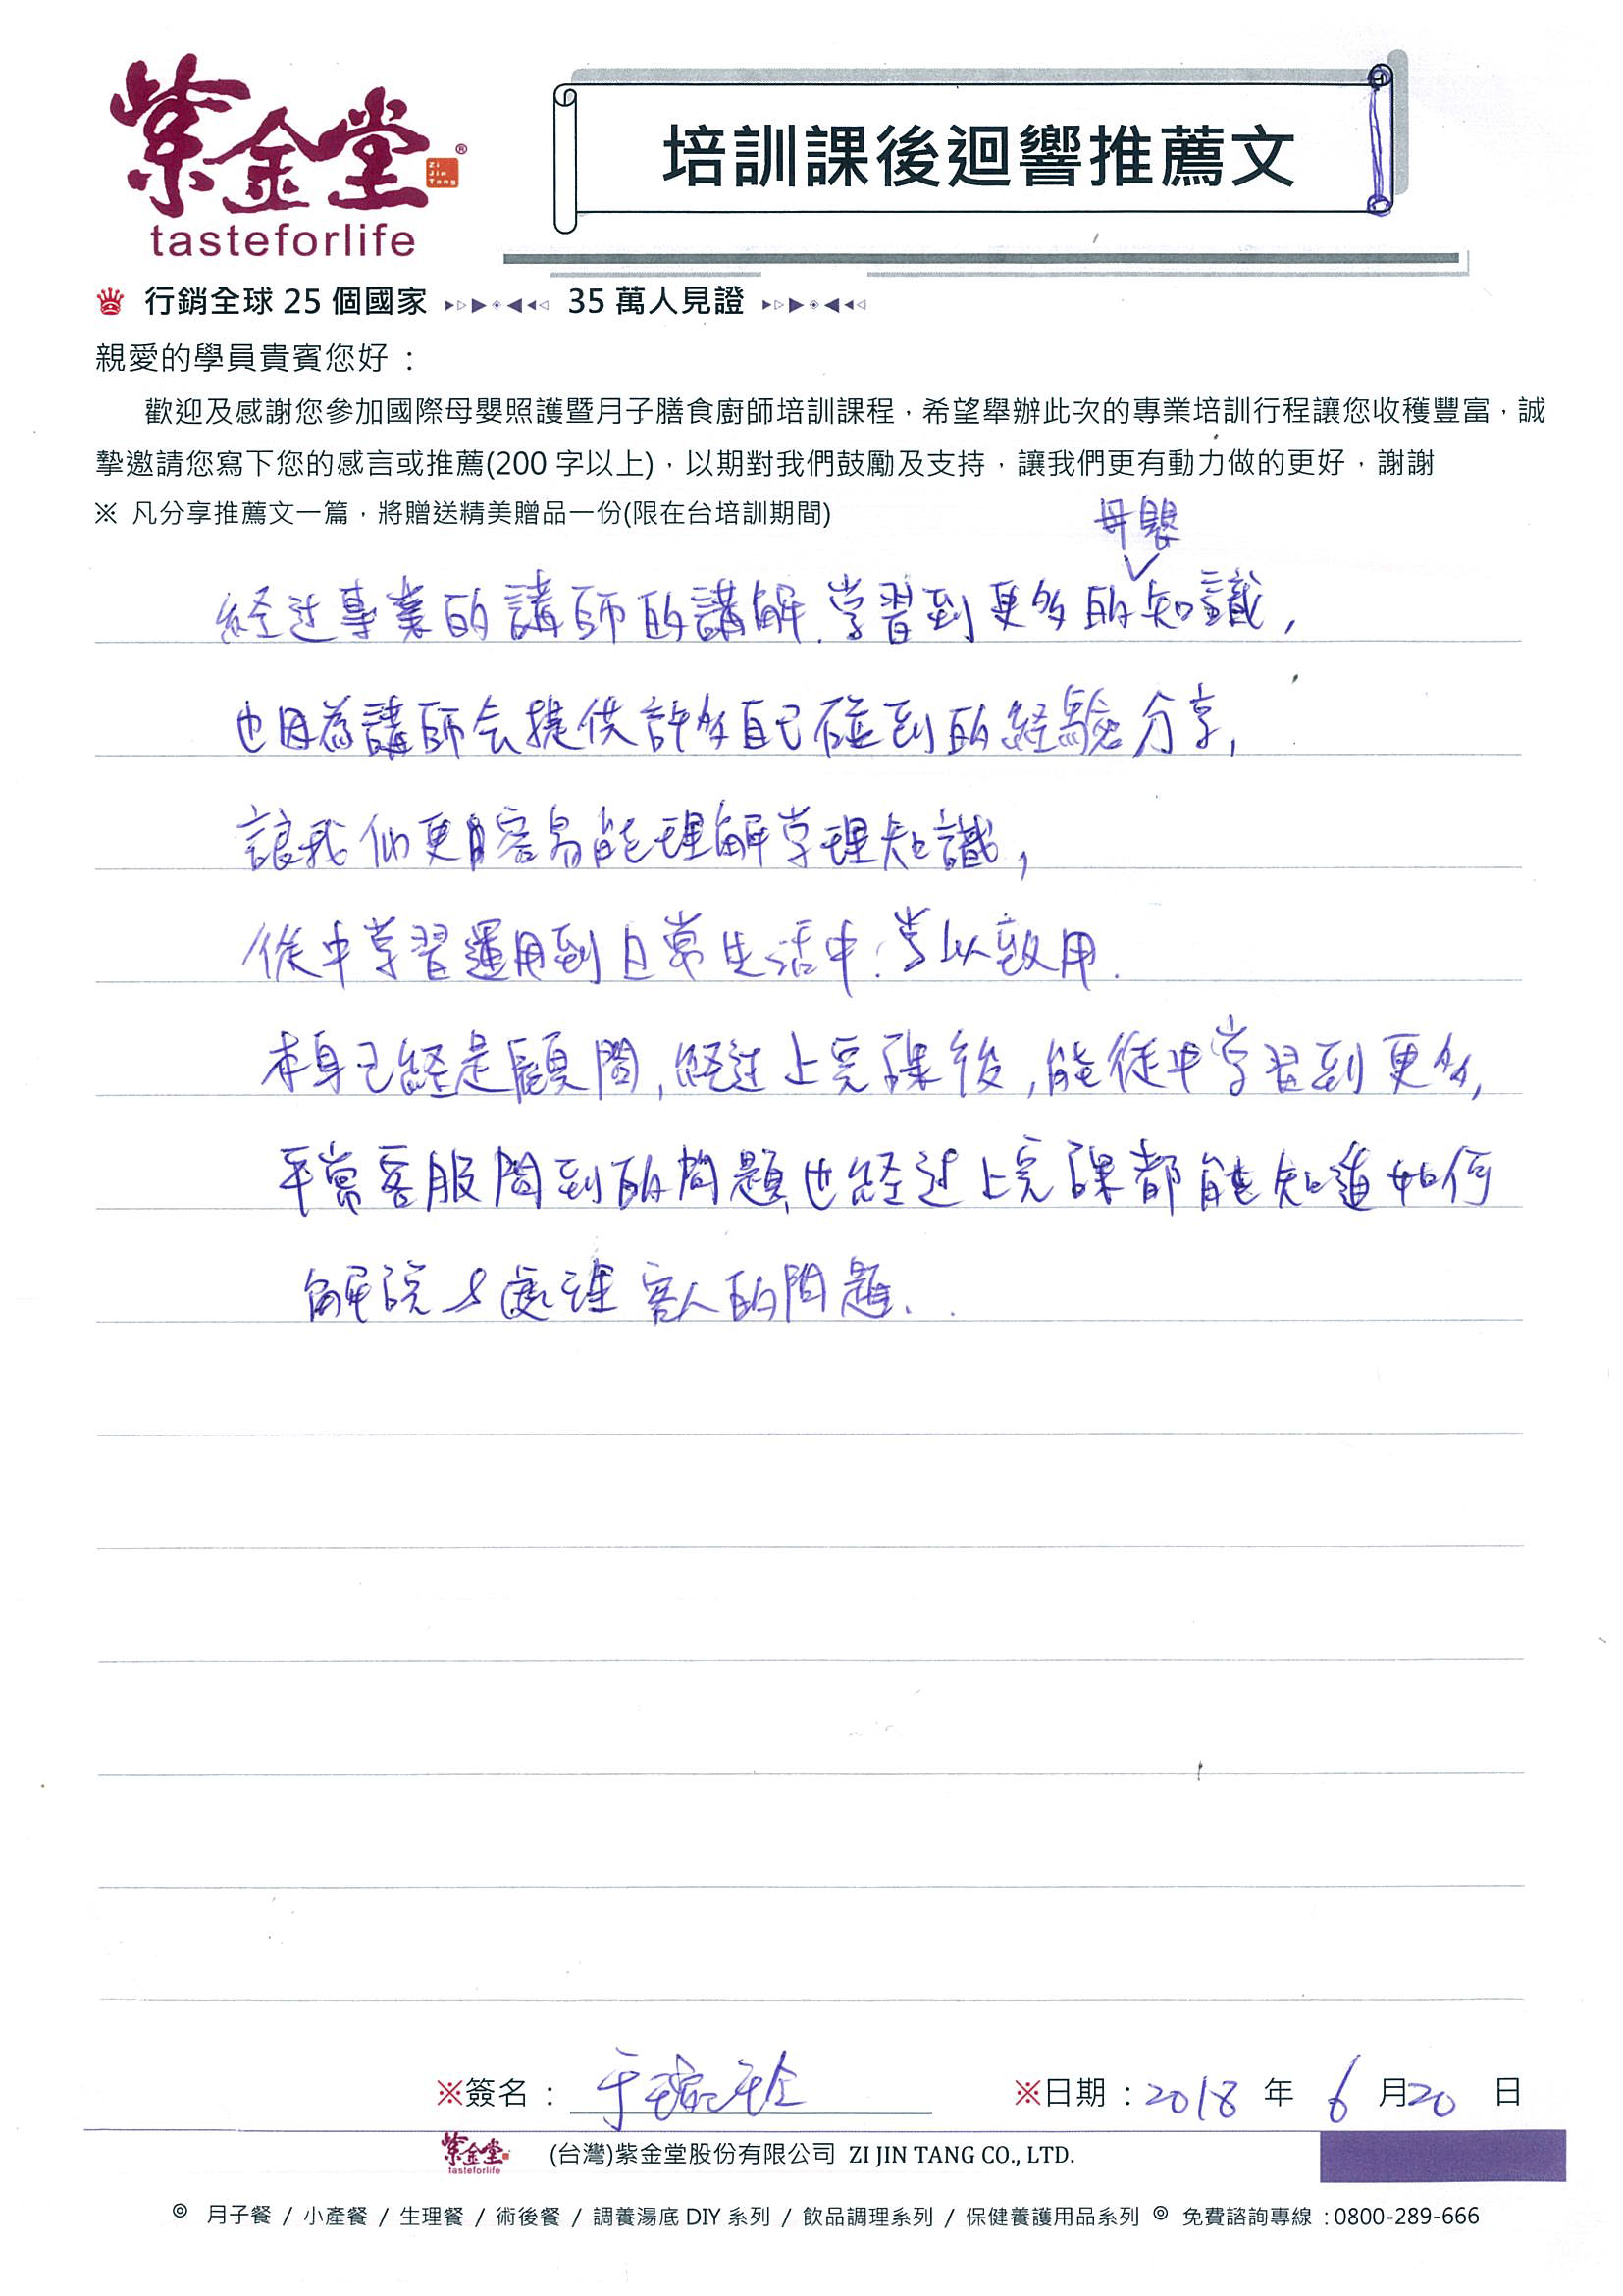 紫金堂®
Zi Jin Tang
tasteforlife
培訓課後迴響推薦文
行銷全球 25 個國家 35 萬人見證
親愛的學員貴賓您好：
歡迎及感謝您參加國際母嬰照護暨月子膳食廚師培訓課程，希望舉辦此次的專業培訓行程讓您收穫豐富，誠
摯邀請您寫下您的感言或推薦(200 字以上)，以期對我們鼓勵及支持，讓我們更有動力做的更好，謝謝
※ 凡分享推薦文一篇，將贈送精美贈品一份(限在台培訓期間)
母嬰
経过專業的講師的講解.学習到更多的知識,
也因為講師会提供許多自己碰到的経驗分享,
讓我們更容易能理解学理知識,
從中学習運用到日常生活中.学以致用.
本身已経是顧問,経过上完課後,能從中学習到更多,
平常客服問到的問題也経过上完課都能知道如何
解說&處理客人的問題.
※簽名：
※日期：2018 年 6 月20 日
紫金堂
tasteforlife
(台灣)紫金堂股份有限公司 ZI JIN TANG CO., LTD.
◎ 月子餐 / 小產餐 / 生理餐 / 術後餐 / 調養湯底 DIY 系列 / 飲品調理系列 / 保健養護用品系列 ◎ 免費諮詢專線：0800-289-666